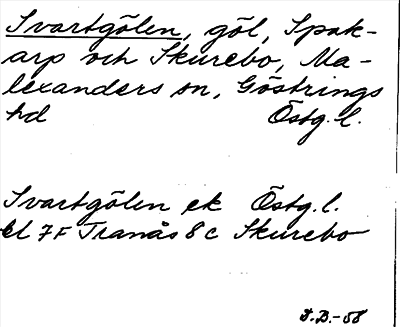 Svartgölen, göl, Spak-
arp och Skurebo, Ma-
lexanders sn, Göstrings
hd Östg. l.
Svartgölen ek Östg. l.
bl 7F Tranås 8c Skurebo
J.B.-58